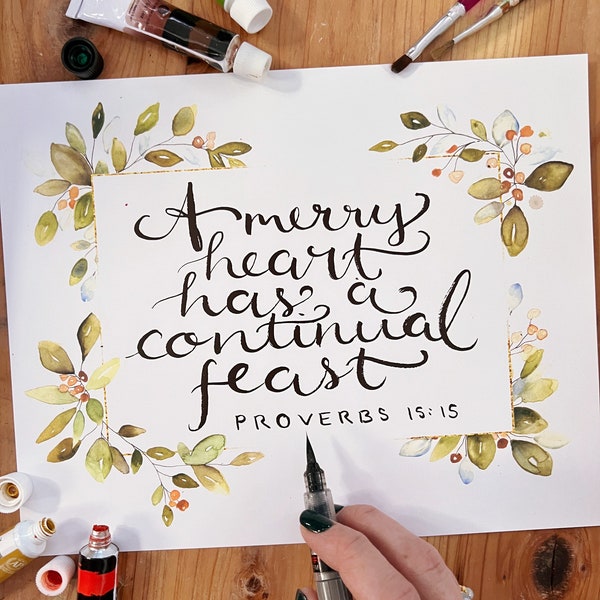 A merry
heart
has a
continual
feast
PROVERBS 15:15